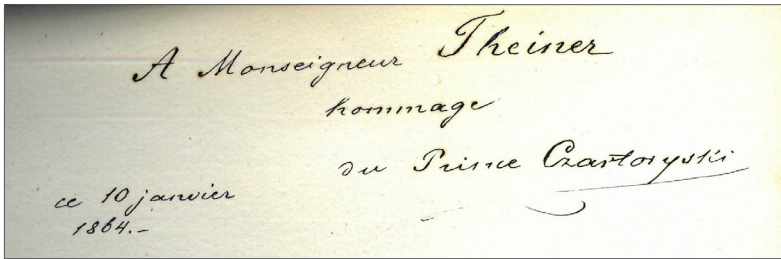 A Monseigneur Theiner
hommage
du Prince Czartoryski
ce 10 janvier
1864.-